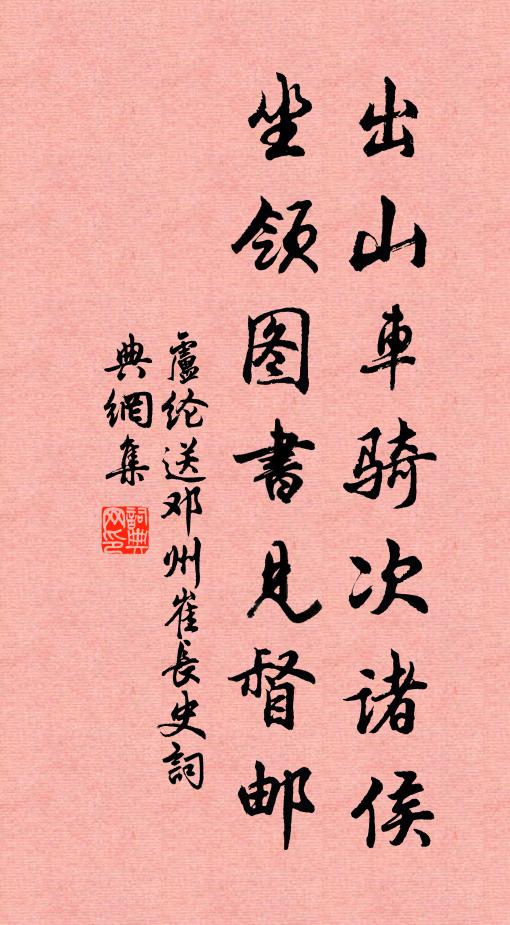 出山車骑次诸侯
坐领图書見督邮
盧纶送邓州崔長史詞
典網集
詞典
网印